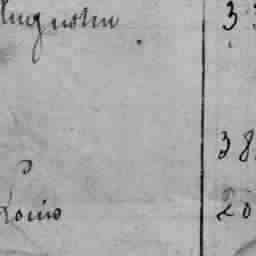 Augustin 33
38
Louis 20